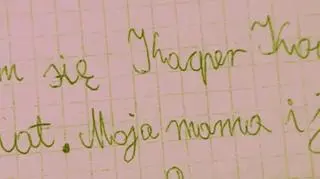 się Kacper
lat. Moja mama i